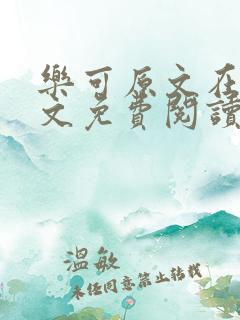 樂可原文在
文免費閱讀
溫敏
未经同意禁止转载